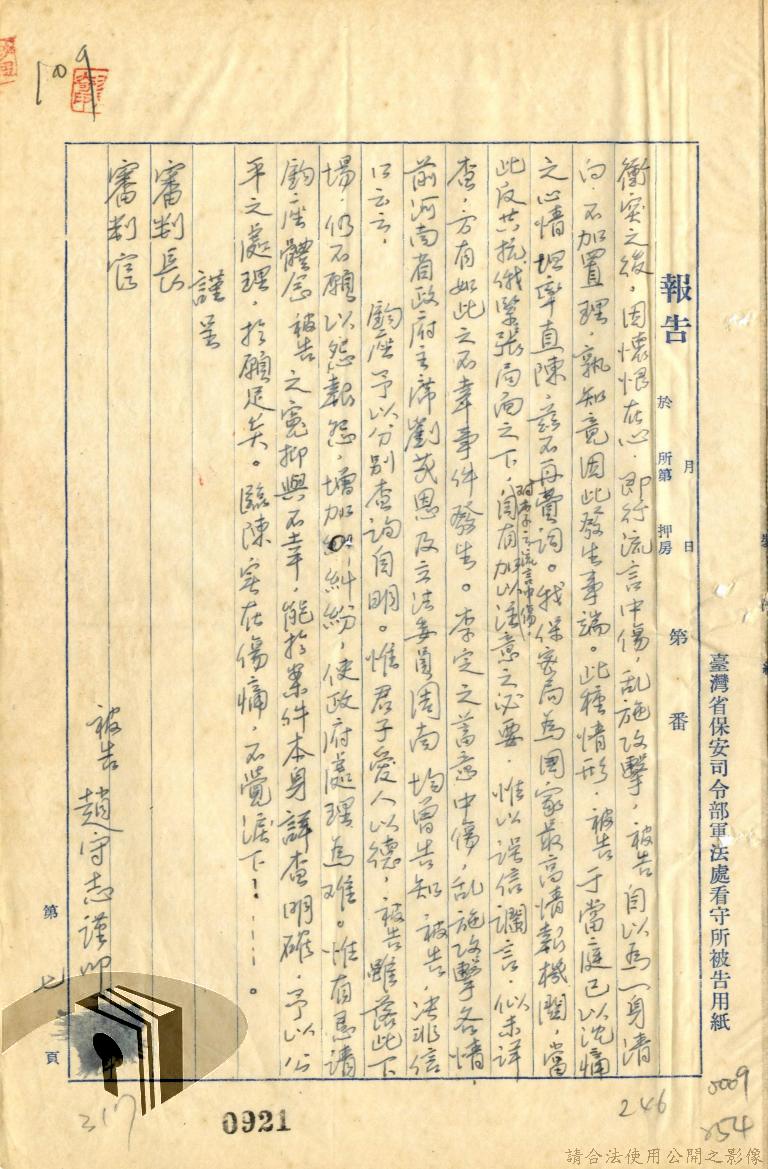 臺灣省保安司令部軍法處看守所被告用紙
報告
於 月 日
所第 押房
第 番
衝突之後，因懷恨在心，即行流言中傷，亂施攻擊，被告自以為一身清
白，不加置理，孰知竟因此發生事端。此種情形，被告于當庭已以沈痛
之心情坦率直陳，茲不再費詞。我保密局為國家最高情報機關，當
此反共抗俄緊張局面之下，自有加以注意之必要，惟以誤信讕言，似未詳
對李之流言中傷，
查，方有如此之不幸事件發生。李定之蓄意中傷，亂施攻擊各情
前河南省政府主席劉茂恩及立法委員周南均曾告知被告，決非信
口云云，鈞座予以分別查詢自明。惟君子愛人以德，被告雖落此下
場，仍不願以怨報怨，增加糾紛，使政府處理為难。惟有懇請
鈞座體念被告之冤抑與不幸，能於案件本身詳查明確，予以公
平之處理，於願足矣。臨陳实在傷痛，不覺淚下！……。
謹呈
審判長
審判官
被告趙守志謹叩
第七頁
109
317
0921
246
5009
254
請合法使用公開之影像